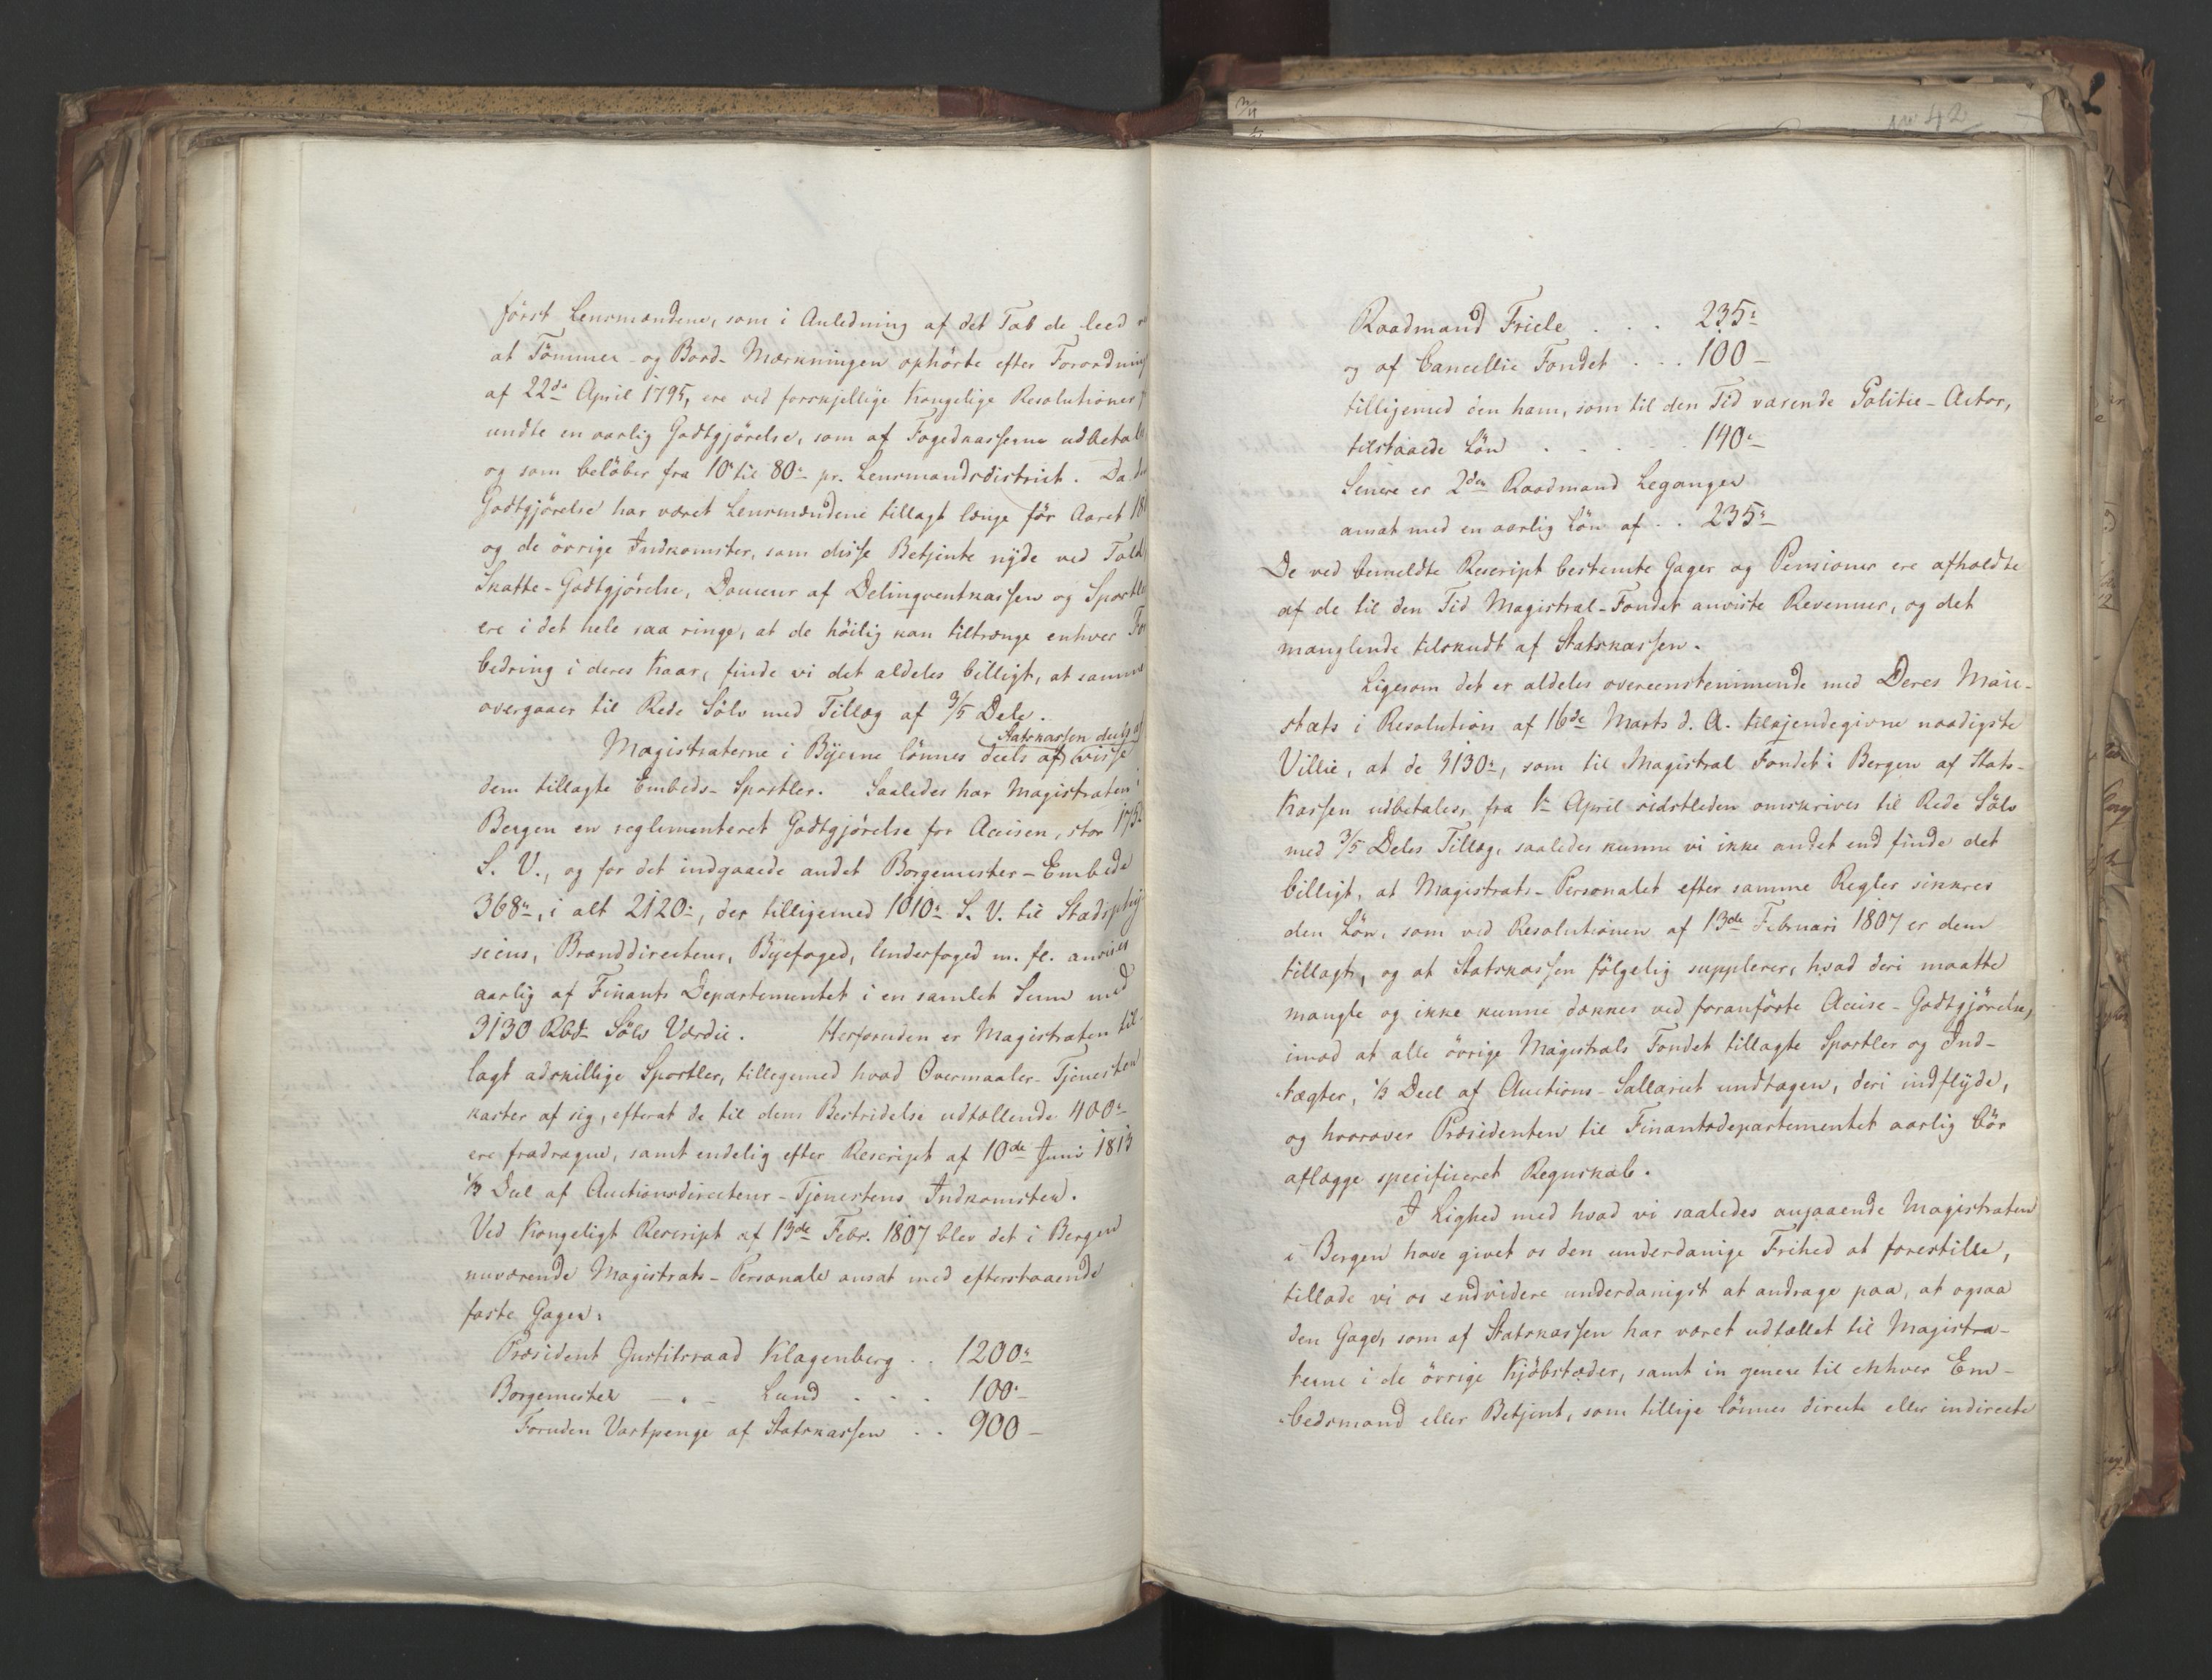 først Lensmændene, som i Anledning af det Tab de leed
at Tömmer- og Bord-Mærkningen ophörte efter Forordning
af 22de April 1795, ere ved forskjellige Kongelige Resolutioner
undte en aarlig Godtgjörelse, som af Fogedkasserne udbetales
og som belöber fra 10 til 80 pr. Lensmandsdistrict. Da
Godtgjörelse har været Lensmændene tillagt længe för Aaret
og de övrige Indkomster, som disse Betjente nyde ved Told
Skatte-Godtgjörelse, Douceur af Delinqventkassen og Sportler
ere i det hele saa ringe, at de höilig kan tiltrænge enhver For
bedring i deres Kaar, finde vi det aldeles billigt, at samme
overgaaer til Rede Sölv med Tillæg af 3/5 Dele.
Statskassen deels af
Magistraterne i Byerne lönnes deels af visse
dem tillagte Embeds-Sportler. Saaledes har Magistraten i
Bergen en reglementeret Godtgjörelse for Accisen, stor 1752
S. V., og for det indgaaede andet Borgemester-Embede
368, i alt 2120, der tilligemed 1010 S. V. til Stadsphy
sicus, Branddirecteur, Byefoged, Underfoged m. fl. anvises
aarlig af Finants Departementet i en samlet Sum med
3130 Rbd. Sölv Værdie. Herforuden er Magistraten til-
lagt adskillige Sportler, tillegemed hvad Overmaaler-Tjenesten
kaster af sig, efterat de til dens Bestridelse udtællende 400
ere fradragne, samt endelig efter Rescript af 10de Juni 1813
1/3 Deel af Auctionsdirecteur-Tjenestens Indkomster.
Ved Kongeligt Rescript af 13de Febr. 1807 blev det i Bergen
nuværende Magistrats-Personale ansat med efterstaaende
faste Gager:
Præsident Justitsraad Klagenberg . . 1200
Borgemester — . — Lund . . . 100
Foruden Vartpenge af Statskassen . . 900 —
No 42
Raadmand Friele . . . 235
og af Cancellie Fondet . . . 100 —
tilligemed den ham, som til den Tid værende Politie-Actor,
tilstaaede Lön . . . . . 140
Senere er 2den Raadmand Leganger
ansat med en aarlig Lön af . . 235
De ved bemeldte Rescript bestemte Gager og Pensioner ere afholdte
af de til den Tid Magistrat-Fondet anviste Revenuer, og det
manglende tilskudt af Statskassen.
Ligesom det er aldeles overeenstemmende med Deres Maje-
stæts i Resolution af 16de Marts d. A. tilkjendegivne naadigste
Villie, at de 3130, som til Magistrat Fondet i Bergen af Stats-
Kassen udbetales, fra 1ste April sidstleden omskrives til Rede Sölv
med 3/5 Deles Tillæg, saaledes kunne vi ikke andet end finde det
billigt, at Magistrats-Personalet efter samme Regler sikkres
den Lön, som ved Resolutionen af 13de Februari 1807 er dem
tillagt, og at Statskassen fölgelig supplerer, hvad deri maatte
mangle og ikke kunne dækkes ved foranförte Accise-Godtgjörelse,
imod at alle övrige Magistrats Fondet tillagte Sportler og Ind-
tægter, 1/3 Deel af Auctions-Sallariet undtagen, deri indflyde,
og hvorover Præsidenten til Finantsdepartementet aarlig bör
aflægge specificeret Regnskab.
I Lighed med hvad vi saaledes angaaende Magistraten
i Bergen have givet os den underdanige Frihed at forestille,
tillade vi os endvidere underdanigst at andrage paa, at ogsaa
den Gage, som af Statskassen har været udtællet til Magistra-
terne i de övrige Kjöbstæder, samt in genere til enhver Em-
bedsmand eller Betjent, som tillige lönnes directe eller indirecte